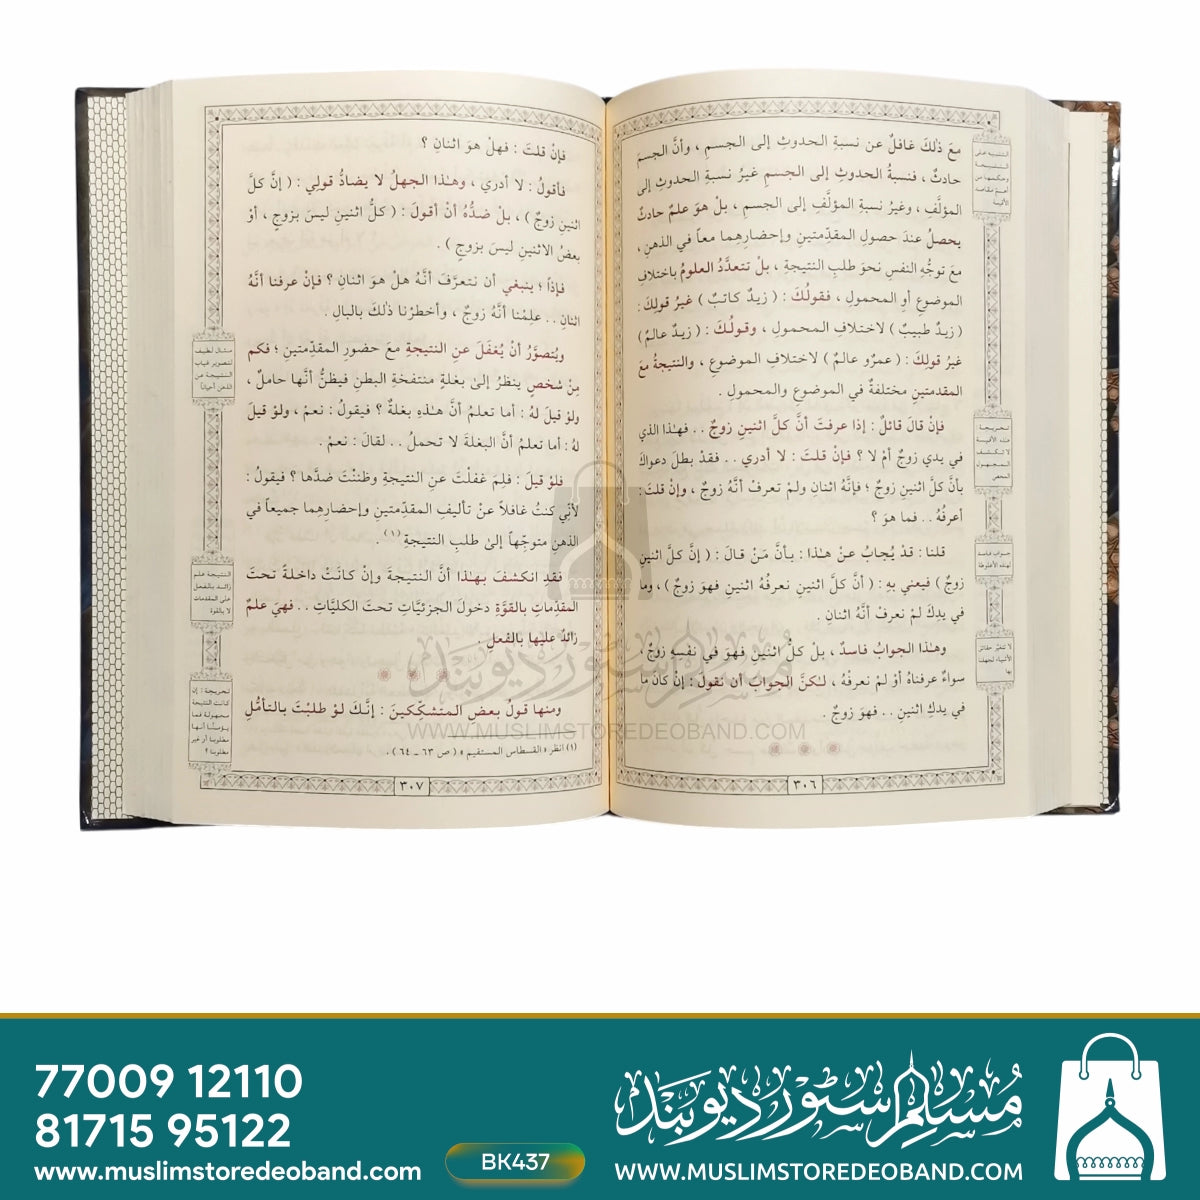 مَعَ ذٰلكَ غافلٌ عن نسبةِ الحدوثِ إلى الجسمِ ، وأنَّ الجسمَ
حادثٌ ، فنسبةُ الحدوثِ إلى الجسمِ غيرُ نسبةِ الحدوثِ إلى
المؤلَّفِ ، وغيرُ نسبةِ المؤلَّفِ إلى الجسمِ ، بلْ هوَ علمٌ حادثٌ
يحصلُ عندَ حصولِ المقدِّمتينِ وإحضارِهِما معاً في الذهنِ ،
معَ توجُّهِ النفسِ نحوَ طلبِ النتيجةِ ، بلْ تتعدَّدُ العلومُ باختلافِ
الموضوعِ أوِ المحمولِ ، فقولُكَ : ( زيدٌ كاتبٌ ) غيرُ قولِكَ :
( زيدٌ طبيبٌ ) لاختلافِ المحمولِ ، وقولُكَ : ( زيدٌ عالمٌ )
غيرُ قولِكَ : ( عمرٌو عالمٌ ) لاختلافِ الموضوعِ ، والنتيجةُ معَ
المقدمتينِ مختلفةٌ في الموضوعِ والمحمولِ .
فإنْ قالَ قائلٌ : إذا عرفتَ أنَّ كلَّ اثنينِ زوجٌ . . فهـٰذا الذي
في يدي زوجٌ أمْ لا ؟ فإنْ قلتَ : لا أدري . . فقدْ بطلَ دعواكَ
بأنَّ كلَّ اثنينِ زوجٌ ؛ فإنَّهُ اثنانِ ولمْ تعرفْ أنَّهُ زوجٌ ، وإنْ قلتَ :
أعرفُهُ . . فما هوَ ؟
قلنا : قدْ يُجابُ عنْ هـٰذا : بأنَّ مَنْ قالَ : ( إنَّ كلَّ اثنينِ
زوجٌ ) فيعني بهِ : ( أنَّ كلَّ اثنينِ نعرفُهُ اثنينِ فهوَ زوجٌ ) ، وما
في يدِكَ لمْ نعرفْ أنَّهُ اثنانِ .
وهـٰذا الجوابُ فاسدٌ ، بلْ كلُّ اثنينِ فهوَ في نفسِهِ زوجٌ ،
سواءٌ عرفناهُ أوْ لمْ نعرفْهُ ، لـٰكنَّ الجوابَ أن نقولَ : إنْ كانَ ما
في يدِكَ اثنينِ . . فهوَ زوجٌ .
التنبيه على
النتيجة
وحكمها من
أهم مقاصد
الأقيسة
جواب فاسد
لهذه الأغلوطة
لا تتغير حقائق
الأشياء لجهلك
بها
٣٠٦
فإنْ قلتَ : فهلْ هوَ اثنانِ ؟
فأقولُ : لا أدري ، وهـٰذا الجهلُ لا يضادُّ قولي : ( إنَّ كلَّ
اثنينِ زوجٌ ) ، بلْ ضدُّهُ أنْ أقولَ : ( كلُّ اثنينِ ليسَ بزوجٍ ، أوْ
بعضُ الاثنينِ ليسَ بزوجٍ ) .
فإذاً ؛ ينبغي أن نتعرَّفَ أنَّهُ هلْ هوَ اثنانِ ؟ فإنْ عرفنا أنَّهُ
اثنانِ . . علِمْنا أنَّهُ زوجٌ ، وأخطرْنا ذٰلكَ بالبالِ .
ويُتصوَّرُ أنْ يُغفَلَ عنِ النتيجةِ معَ حضورِ المقدِّمتينِ ؛ فكم
مِنْ شخصٍ ينظرُ إلىٰ بغلةٍ منتفخةِ البطنِ فيظنُّ أنَّها حاملٌ ،
ولوْ قيلَ لهُ : أما تعلمُ أنَّ هـٰذهِ بغلةٌ ؟ فيقولُ : نعمْ ، ولوْ قيلَ
لهُ : أما تعلمُ أنَّ البغلةَ لا تحملُ . . لقالَ : نعمْ .
فلوْ قيلَ : فلِمَ غفلْتَ عنِ النتيجةِ وظننْتَ ضدَّها ؟ فيقولُ :
لأنِّي كنتُ غافلاً عنْ تأليفِ المقدِّمتينِ وإحضارِهِما جميعاً في
الذهنِ متوجِّهاً إلىٰ طلبِ النتيجةِ (١) .
فقدِ انكشفَ بهـٰذا أنَّ النتيجةَ وإنْ كانَتْ داخلةً تحتَ
المقدِّماتِ بالقوَّةِ دخولَ الجزئيَّاتِ تحتَ الكليَّاتِ . . فهيَ علمٌ
زائدٌ عليها بالفعلِ .
ومنها قولُ بعضِ المتشكِّكينَ : إنَّكَ لوْ طلبْتَ بالتأمُّلِ
(١) انظر « القسطاس المستقيم » ( ص ٦٣ ـ ٦٤ ) .
مثال لطيف
لتصوير غياب
النتيجة عن
الذهن أحياناً
النتيجة علم
زائد بالفعل
على المقدمات
لا بالقوة
تحريجة : إن
كانت النتيجة
مجهولة فما
يؤمننا أنها
مطلوبنا أو غير
مطلوبنا ؟
٣٠٧
مسلم سٹور دیوبند
WWW.MUSLIMSTOREDEOBAND.COM
77009 12110
81715 95122
www.muslimstoredeoband.com
BK437
مسلم سٹور دیوبند
WWW.MUSLIMSTOREDEOBAND.COM